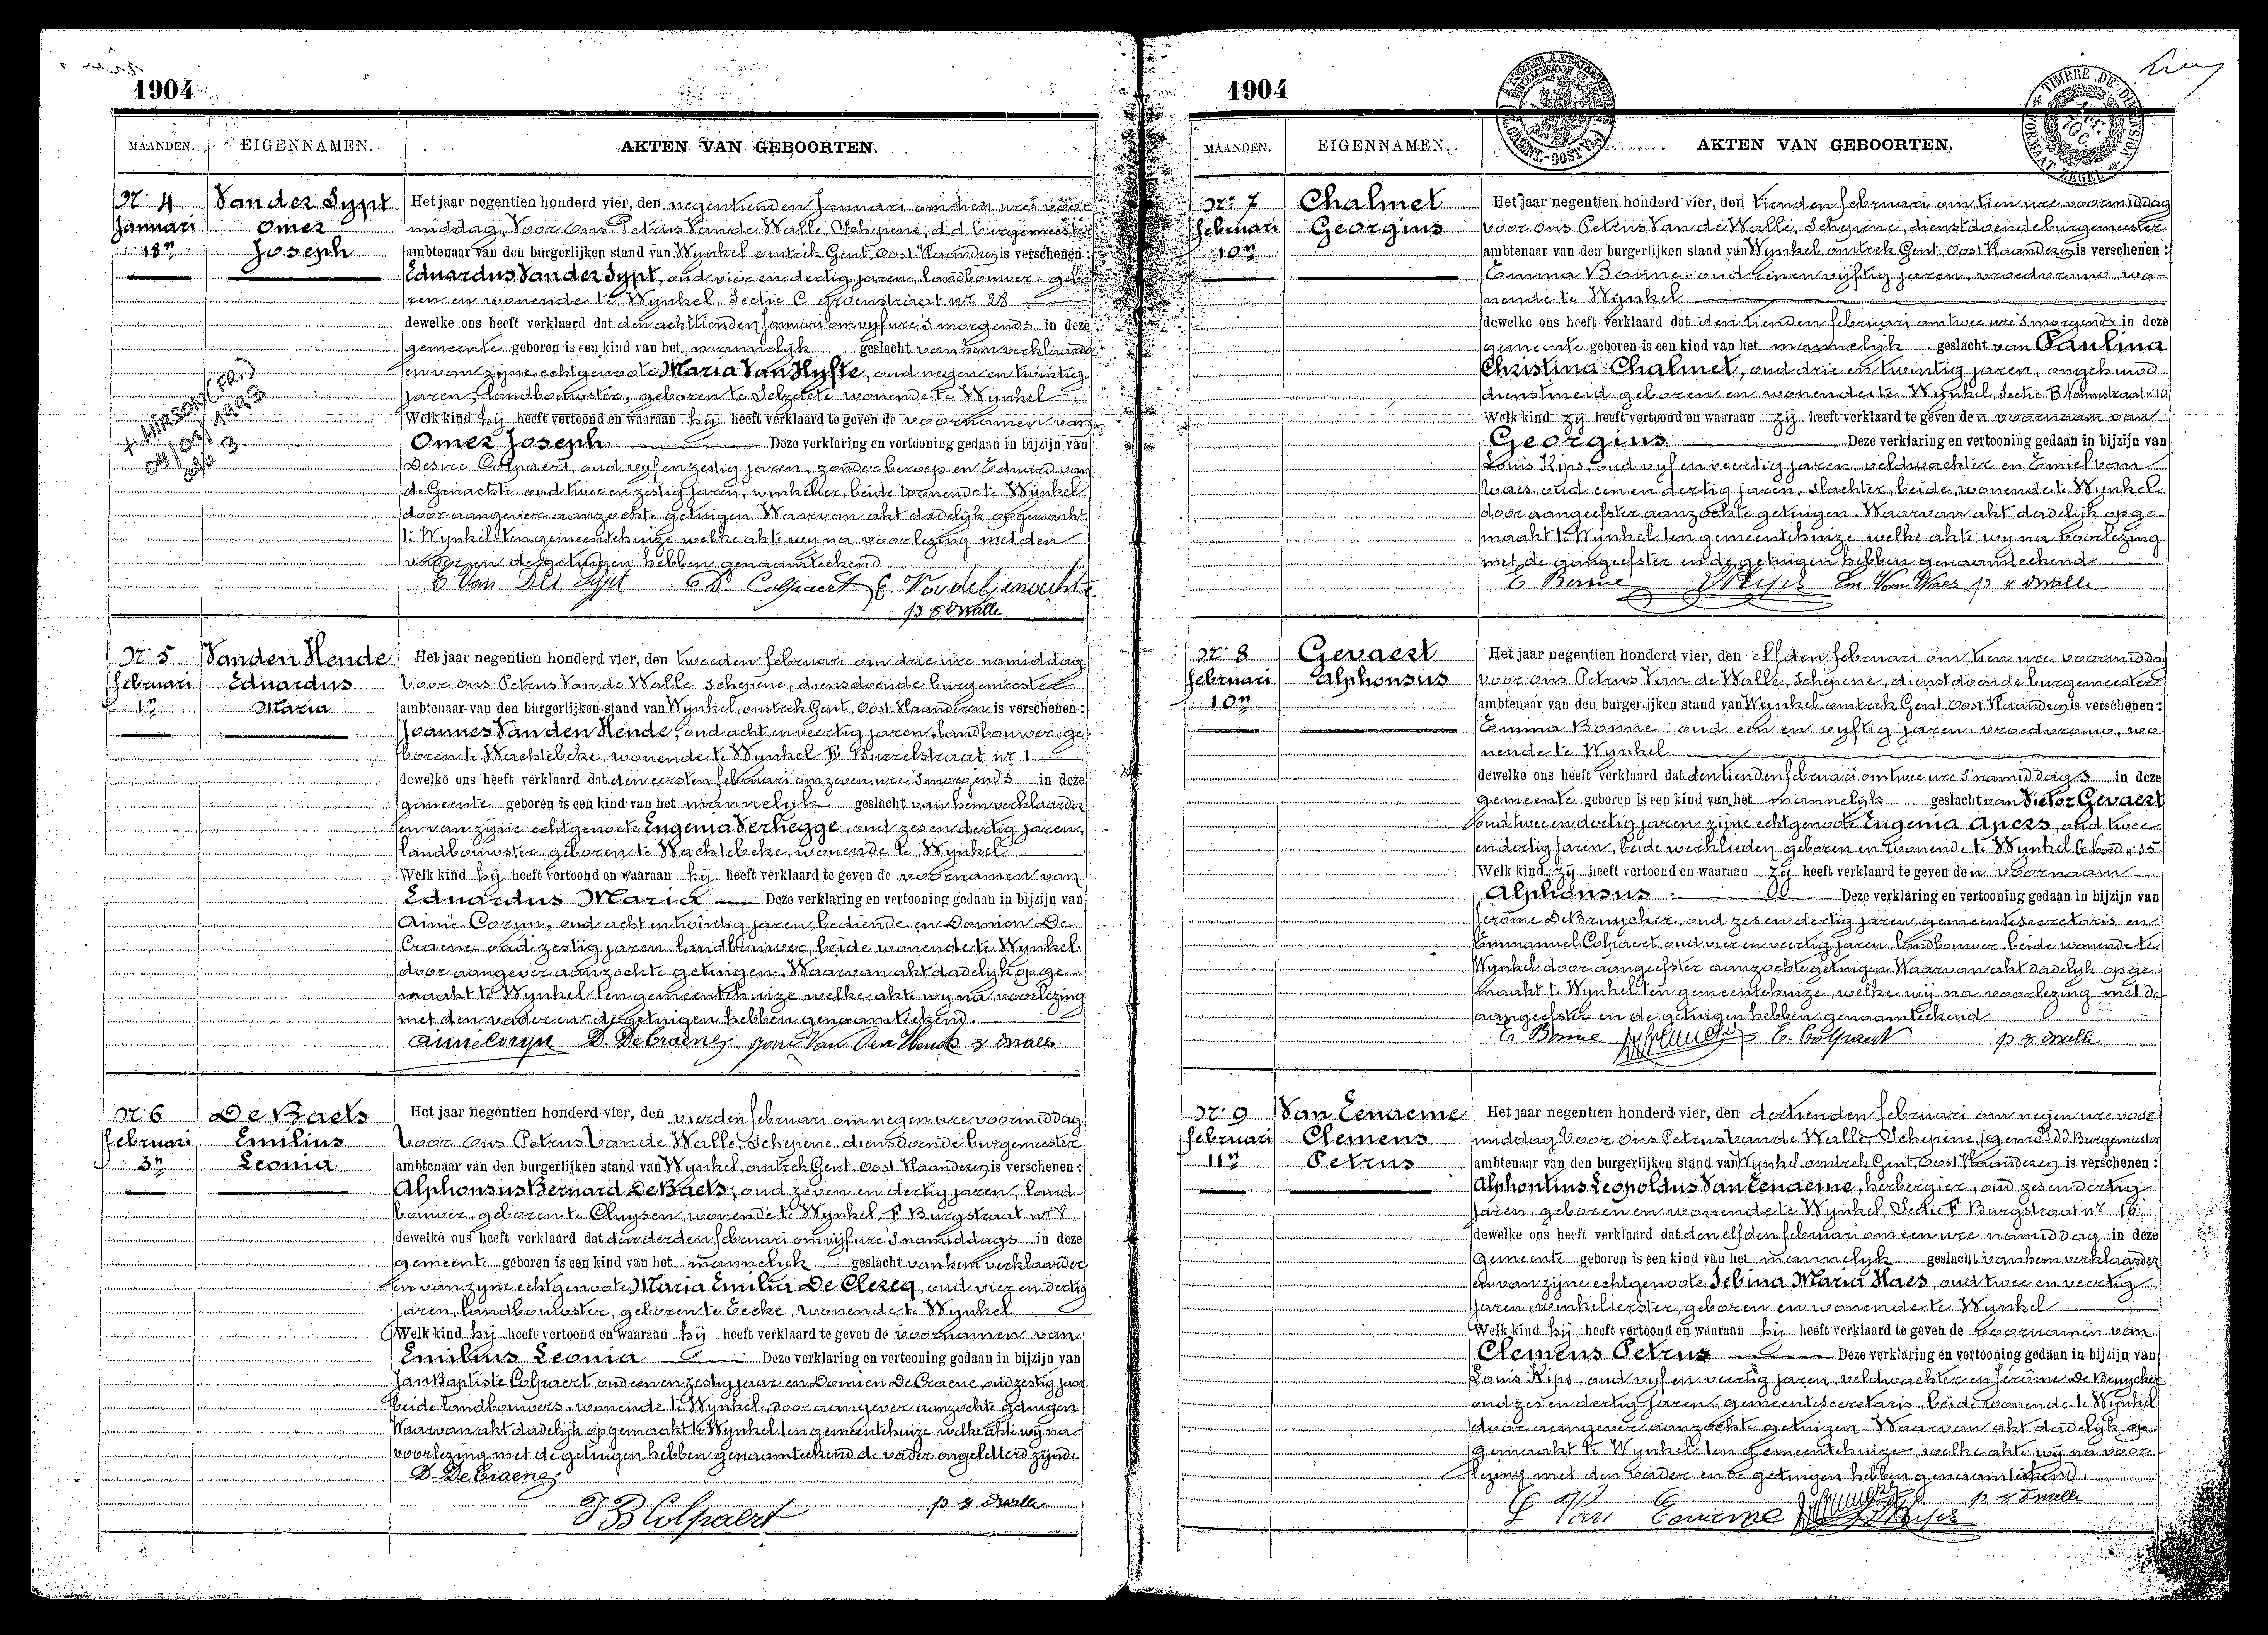 1904
MAANDEN. EIGENNAMEN. AKTEN VAN GEBOORTEN.
Nr. 4
Januari
18n
Van der Sypt
Omer
Joseph
+ HIRSON (FR.)
04/09/1993
alb 3.
Het jaar negentien honderd vier, den negentienden Januari om tien ure voor
middag, Voor Ons Petrus Van de Walle, Schepene, d.d. burgemeester
ambtenaar van den burgerlijken stand van Wynkel omtrek Gent, Oost Vlaanderen is verschenen:
Eduardus Van der Sypt, oud vier en dertig jaren, landbouwer, gebo
ren en wonende te Wynkel, Sectie C Groenstraat nr 28
dewelke ons heeft verklaard dat den achttienden Januari om vijf ure 's morgends in deze
gemeente geboren is een kind van het mannelyk geslacht van hem verklaarder
en van zijne echtgenoote Maria Van Hyfte, oud negen en twintig
jaren, landbouwster, geboren te Selzaete wonende te Wynkel
Welk kind hij heeft vertoond en waaraan hij heeft verklaard te geven de voornamen van
Omer Joseph Deze verklaring en vertooning gedaan in bijzijn van
Desiré Colpaert, oud vyf en zestig jaren, zonder beroep en Eduard van
de Genachte oud twee en zestig jaren, winkelier, beide wonende te Wynkel
door aangever aanzochte getuigen Waarvan akt dadelijk opgemaakt
te Wynkel ten gemeentehuize welke akte wy na voorlezing met den
vader en de getuigen hebben genaamteekend
E Van Der Sypt C D. Colpaert E Van de Genachte
p v d Walle
Nr. 5
Februari
1n
Vanden Hende
Eduardus
Maria
Het jaar negentien honderd vier, den tweeden februari om drie ure namiddag
Voor ons Petrus Van de Walle Schepene, diensdoende burgemeester
ambtenaar van den burgerlijken stand van Wynkel, omtrek Gent, Oost Vlaanderen is verschenen:
Joannes Van den Hende, oud acht en veertig jaren, landbouwer, ge
boren te Wachtebeke, wonende te Wynkel F. Burrelstraat nr 1
dewelke ons heeft verklaard dat den eersten februari om zeven ure 's morgends in deze
gemeente geboren is een kind van het mannelyk geslacht van hem verklaarder
en van zijne echtgenoote Eugenia Verhegge, oud zes en dertig jaren,
landbouwster, geboren te Wachtebeke, wonende te Wynkel
Welk kind hij heeft vertoond en waaraan hij heeft verklaard te geven de voornamen van
Eduardus Maria Deze verklaring en vertooning gedaan in bijzijn van
Aimé Coryn, oud acht en twintig jaren, bediende en Domien De
Craene oud zestig jaren, landbouwer, beide wonende te Wynkel
door aangever aanzochte getuigen. Waarvan akt dadelyk opge
maakt te Wynkel ten gemeentehuize welke akte wy na voorlezing
met den vader en de getuigen hebben genaamteekend.
Aimé Coryn D. De Craene Joan Van Den Hende v d Walle
Nr. 6
Februari
3n
De Baets
Emilius
Leonia
Het jaar negentien honderd vier, den vierden februari om negen ure voormiddag
Voor Ons Petrus Van de Walle, Schepene, diensdoende burgemeester
ambtenaar van den burgerlijken stand van Wynkel omtrek Gent, Oost Vlaanderen is verschenen:
Alphonsus Bernard De Baets, oud zeven en dertig jaren, land
bouwer, geboren te Cluysen, wonende te Wynkel F Burgstraat nr 8
dewelke ons heeft verklaard dat den derden februari om vijf ure 's namiddags in deze
gemeente geboren is een kind van het mannelyk geslacht van hem verklaarder
en van zyne echtgenoote Maria Emilia De Clercq, oud vier en dertig
jaren, landbouwster, geboren te Eecke, wonende te Wynkel
Welk kind hij heeft vertoond en waaraan hij heeft verklaard te geven de voornamen van
Emilius Leonia Deze verklaring en vertooning gedaan in bijzijn van
Jan Baptiste Colpaert, oud een en zestig jaar en Domien De Craene, oud zestig jaar
beide landbouwers, wonende te Wynkel, door aangever aanzochte getuigen
Waarvan akt dadelyk opgemaakt te Wynkel ten gemeentehuize welke akte wij na
voorlezing met de getuigen hebben genaamteekend de vader ongeletterd zijnde
D. De Craene
J B Colpaert p v d Walle
1904
TIMBRE DE DIMENSION
FORMAAT ZEGEL
MAANDEN. EIGENNAMEN. AKTEN VAN GEBOORTEN.
Nr. 7
Februari
10n
Chalmet
Georgius
Het jaar negentien honderd vier, den tienden februari om tien ure voormiddag
Voor ons Petrus Van de Walle, Schepene, dienstdoende burgemeester
ambtenaar van den burgerlijken stand van Wynkel omtrek Gent, Oost Vlaanderen is verschenen:
Emma Bonne oud een en vyftig jaren, vroedvrouw, wo
nende te Wynkel
dewelke ons heeft verklaard dat den tienden februari om twee ure 's morgends in deze
gemeente geboren is een kind van het mannelyk geslacht van Paulina
Christina Chalmet, oud drie en twintig jaren, ongehuwd
dienstmeid geboren en wonende te Wynkel, Sectie B Nonnestraat n 10
Welk kind zij heeft vertoond en waaraan zij heeft verklaard te geven den voornaam van
Georgius Deze verklaring en vertooning gedaan in bijzijn van
Louis Kips, oud vyf en veertig jaren, veldwachter en Emiel van
Waes, oud een en dertig jaren, slachter, beide wonende te Wynkel
door aangeefster aanzochte getuigen. Waarvan akt dadelijk opge
maakt te Wynkel ten gemeentehuize, welke akte wy na voorlezing
met de aangeefster en de getuigen hebben genaamteekend
E Bonne L Keips Em. Van Waes p v d Walle
Nr. 8
Februari
10n
Gevaert
Alphonsus
Het jaar negentien honderd vier, den elfden februari om tien ure voormiddag
Voor ons Petrus Van de Walle, Schepene, dienstdoende burgemeester
ambtenaar van den burgerlijken stand van Wynkel omtrek Gent, Oost Vlaanderen is verschenen:
Emma Bonne oud een en vyftig jaren, vroedvrouw, wo
nende te Wynkel
dewelke ons heeft verklaard dat den tienden februari om twee ure 's namiddags in deze
gemeente geboren is een kind van het mannelyk geslacht van Victor Gevaert
oud twee en dertig jaren zijne echtgenoote Eugenia Apers, oud twee
en dertig jaren, beide werklieden geboren en wonende te Wynkel G Noord n 35
Welk kind zij heeft vertoond en waaraan zij heeft verklaard te geven den voornaam
Alphonsus Deze verklaring en vertooning gedaan in bijzijn van
Jerôme De Bruycker, oud zes en dertig jaren, gemeentesecretaris en
Emmanuel Colpaert, oud vier en veertig jaren, landbouwer, beide wonende te
Wynkel door aangeefster aanzochte getuigen Waarvan akt dadelyk opge
maakt te Wynkel ten gemeentehuize, welke wij na voorlezing met de
aangeefster en de getuigen hebben genaamteekend
E Bonne E. Colpaert p v d Walle
Nr. 9
Februari
11n
Van Eenaeme
Clemens
Petrus
Het jaar negentien honderd vier, den dertienden februari om negen ure voor
middag Voor Ons Petrus Van de Walle, Schepene, d.d. Burgemeester
ambtenaar van den burgerlijken stand van Wynkel omtrek Gent, Oost Vlaanderen is verschenen:
Alphontius Leopoldus Van Eenaeme, herbergier, oud zes en dertig
jaren, geboren en wonende te Wynkel, Sectie F Burgstraat nr 16
dewelke ons heeft verklaard dat den elfden februari om een ure namiddag in deze
gemeente geboren is een kind van het mannelyk geslacht van hem verklaarder
en van zijne echtgenoote Sebina Maria Haes, oud twee en veertig
jaren, winkelierster, geboren en wonende te Wynkel
Welk kind hij heeft vertoond en waaraan hij heeft verklaard te geven de voornamen van
Clemens Petrus Deze verklaring en vertooning gedaan in bijzijn van
Louis Kips, oud vyf en veertig jaren, veldwachter en Jérôme De Bruycker
oud zes en dertig jaren, gemeentesecretaris, beide wonende te Wynkel
door aangever aanzochte getuigen. Waarvan akt dadelijk op
gemaakt te Wynkel ten gemeentehuize, welke akte wij na voor
lezing met den vader en de getuigen hebben genaamteekend.
Van Eenaeme L Keips p v d Walle